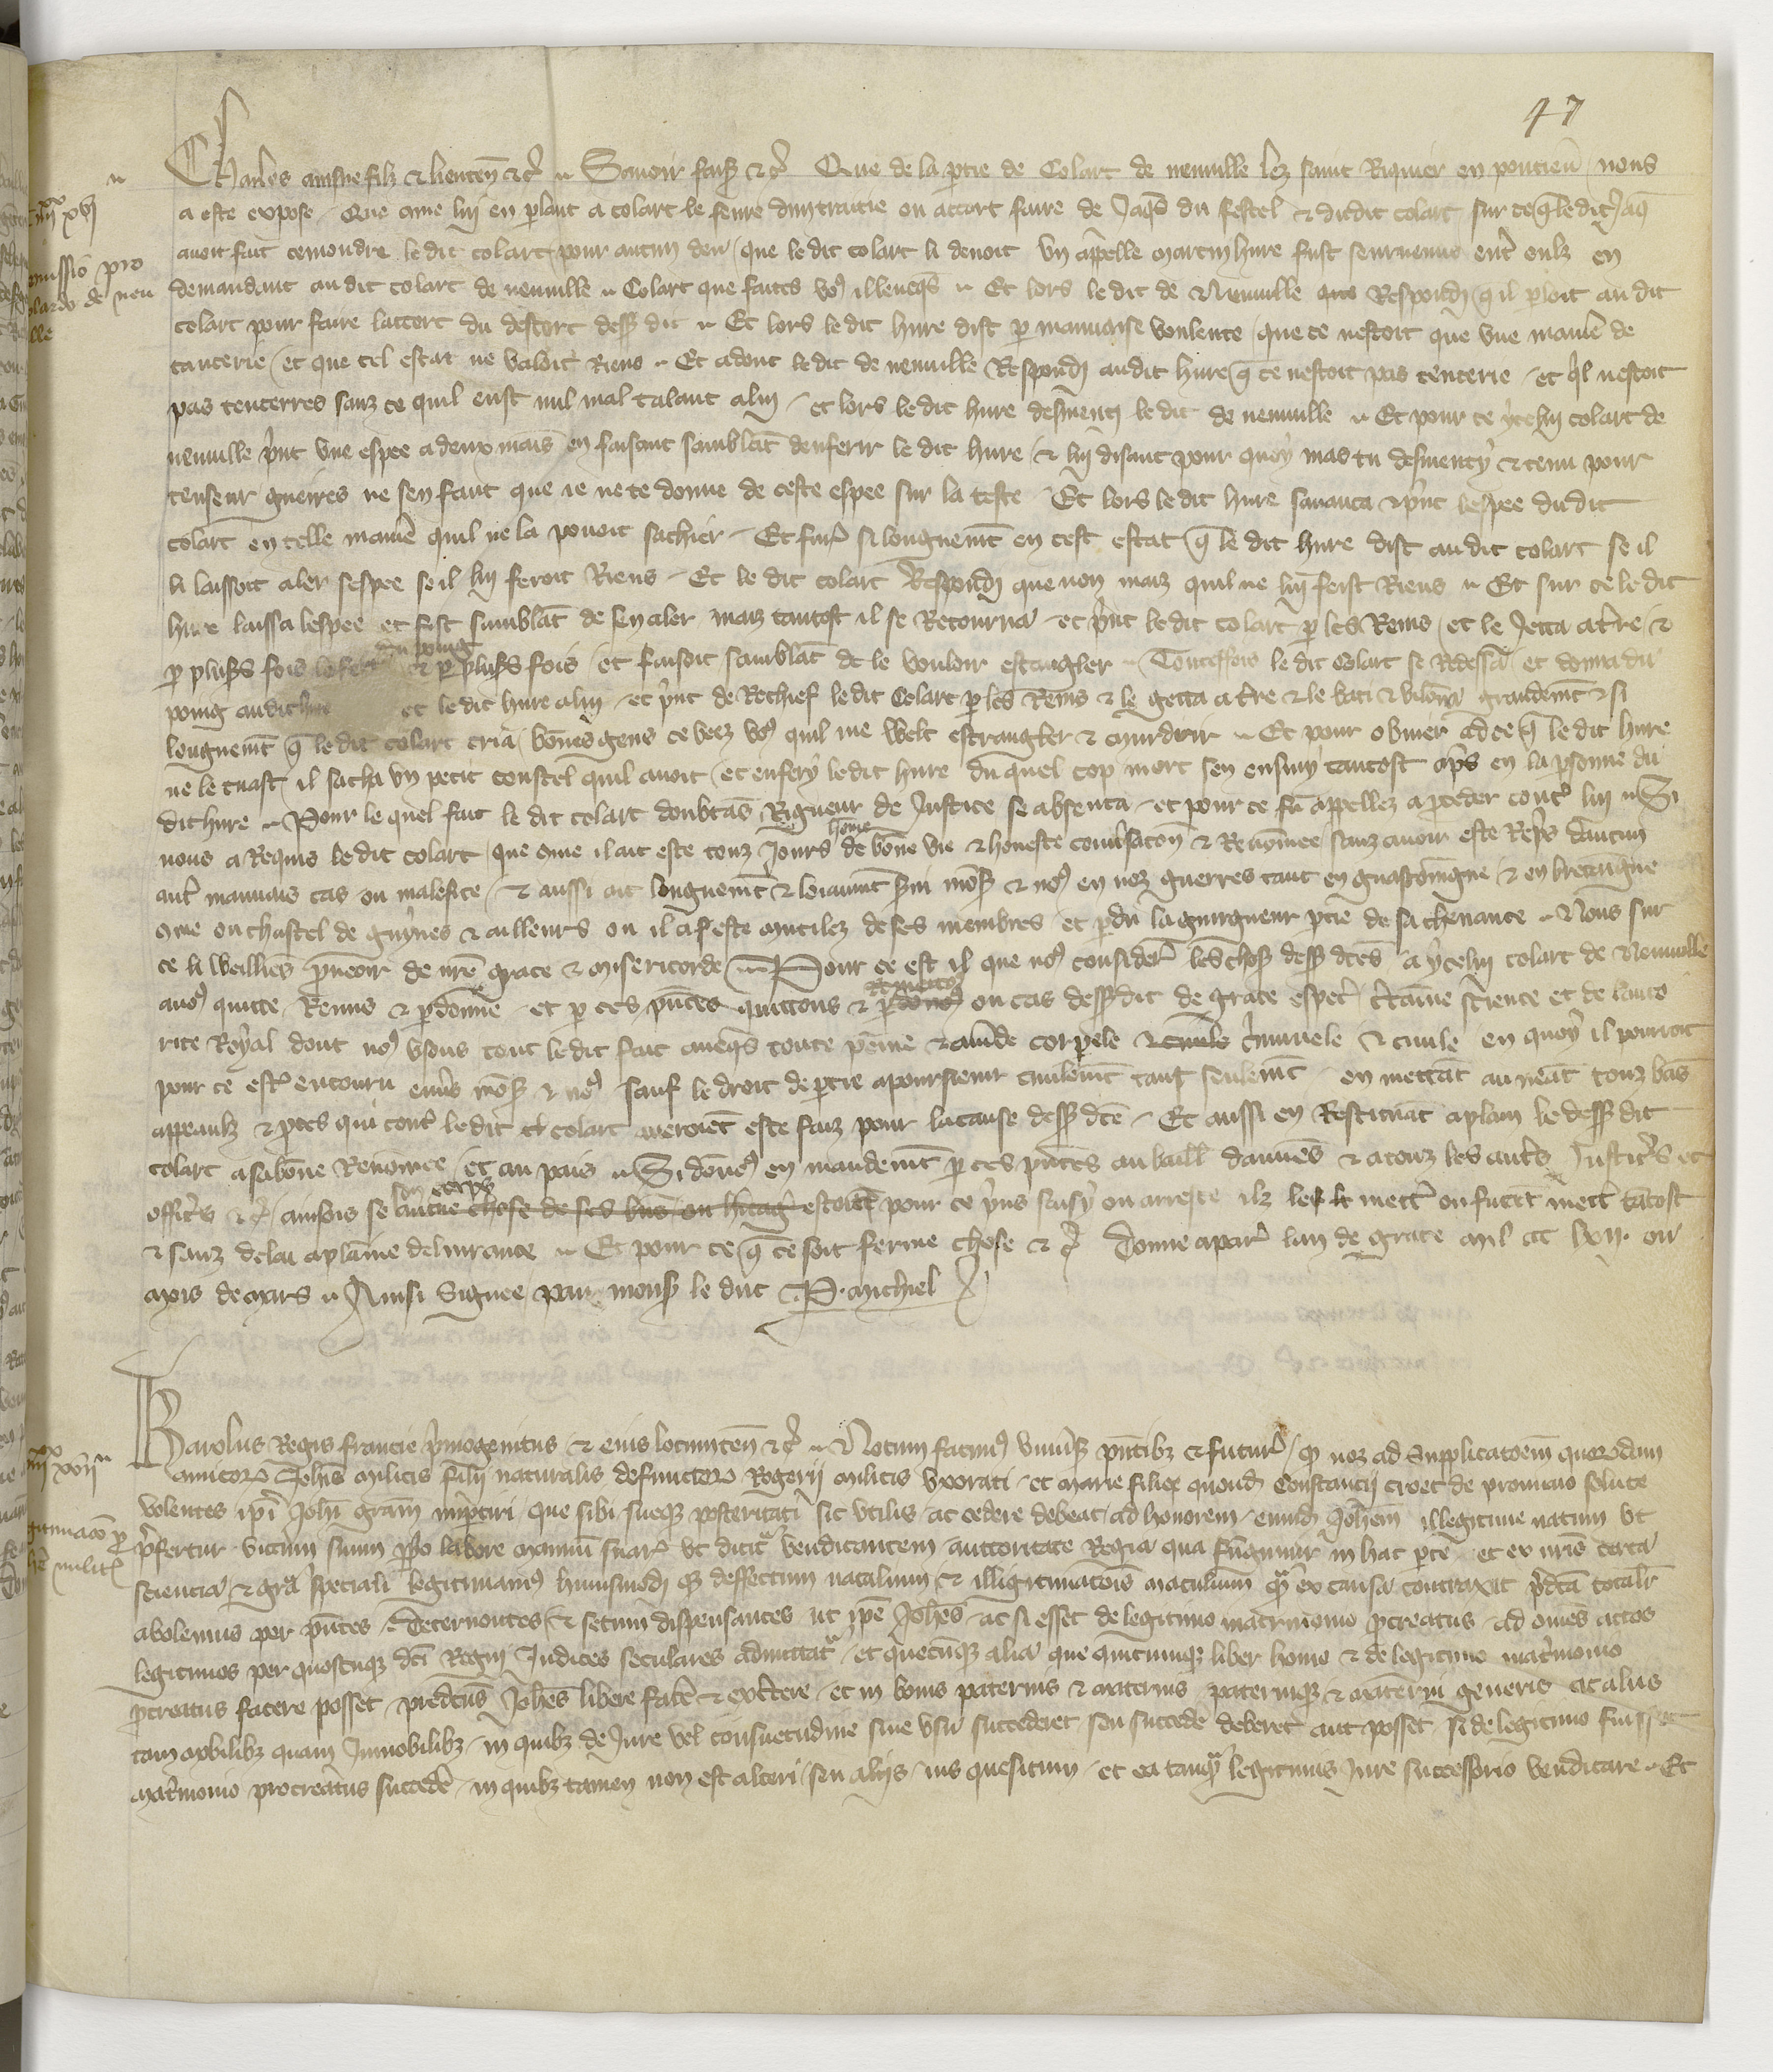 47
Charles ainsne filz & lieuten̄ &c̄ Savoir fais̄ &c̄ Que de la p̄tie de Colart de neuuille lez saint Riquier en pontieu / nous
iiii xx xvi
a este expose / Que cõme lui en p̄lant a colart le feure dun traitie ou accort faire de Jaq̄s du festel & dudit colart sur ce q̄ ledit Jaq̄
auoit fait semondre le dit colart pour aucun deu / que le dit colart li deuoit vn apelle martin hure fust seuruenus ent̄ eulz en
missiõ pro
demandant au dit colart de neuuille Colart que faites vo9 illeueq̄s Et lors le dit de Neuuille Respondi q̄ il p̄loit au dit
colardo de neu
colart pour faire laccort du descort dess9 dit Et lors le dit hure dist p̄ mauuaise voulente / que ce nestoit que vne maniē de
lle
tancerie / et que tel estat ne valoit riens Et adont le dit de neuuille Respondi audit hure q̄ ce nestoit pas tencerie et q̄l nestoit
pas tencerres sanz ce quil eust nul mal talant a lui et lors le dit hure desmenti le dit de neuuille Et pour ce ycelui colart de
neuuille p̄nt vne espee a deux mais en faisant samblāt denferir le dit hure / & lui disant pour quoy mas tu desmenty & tenu pour
tenseur gueires ne sen faut que ie ne te donne de ceste espee sur la teste Et lors le dit hure sauanca & p̄nt lespee du dit
colart en telle maniē quil ne la pouoit sachier Et fur̄ si longuem̄t en cest estat q̄ le dit hure dist au dit colart se il
li laissoit aler sespee se il lui feroit Riens Et le dit colart Respondi que non maiz quil ne lui feist Riens Et sur ce le dit
hure laissa lespee et fist samblāt de sen aler maiz tantost il se Retourna et p̄nt le dit colart p̄ les Reins / et le Jetta a t̄re / &
du poing
p̄ pluss̄ fois le feri & p̄ pluss̄ fois / et faisoit samblāt de le vouloir estrangler Toutesfois le dit Colart se Redessa et donna du
poing audit hure et le dit hure a lui et p̄nt de Rechief ledit Colart p̄ les Reins & le getta a t̄re & le bati & vilena grandem̄t & si
longuem̄t q̄ le dit colart cria / bōnes gens ce veez vo9 quil me welt estrangler & murdrir Et pour obuier ad ce q̄ le dit hure
ne le tuast / il sacha vn petit coustel quil auoit / et enfery le dit hure du quel cop mort sen ensuiy tantost ap̄s en la p̄sonne du
dit hure Pour le quel fait le dit colart doubtās Rigueur de Justice se absenta et pour ce fu appellez a p̄ceder cont̄ lui Si
home
nous a Requis le dit colart / que cõme il ait este touz Jours de bōne vie & honeste conu̓sacon & Renõmee sanz auoir este Rep̄s daucun
aut̄ mauuais cas ou malefice / & aussi ait longuem̄t & loiaumt̄ s̄ui mõs̄ & no9 en noz guerres tant en guascoingne & en bretaigne
cõme ou chastel de guynes & ailleurs ou il a este mutilez de ses membres et p̄du la guigneur p̄tie de sa cheuance Nous sur
ce li weillies p̄ueoir de nr̄e grace & misericorde Pour ce est il que no9 consider̄ les chos̄ dess9 dc̄es a ycelui colart de Neuuille
remettõs
auo9 quitte Remis & p̄donne et p̄ ces p̄ntes quittons & p̄donõs ou cas dess9dit de grace especl̄ c̄taine science et de lauto
rite Royal dont no9 vsons tout le dit fait aueq̄s toute peine & amende corp̄ele & ciuile c̄minele & ciuile en quoy il pourroit
pour ce est̄ encouru enu̓s mõs̄ & no9 sauf le droit de p̄tie a poursieuir ciuilem̄t tant seulem̄t en mettāt au neāt touz bās
appeaulz & p̄ces qui cont̄ le dit cl colart aueroiēt este faiz pour la cause dess9 dc̄e Et aussi en Restituāt a plain le dess9 dit
colart a sa bōne Renõmee et au pais Si dōno9 en mandem̄t p̄ ces p̄ntes au baill̄ damiēs & a touz les aut̄s Justic̄s et
son corps
offic̄s &c̄ / ainsois se aucune chose de ses biēs ou h̄itaḡ estoiēt pour ce p̄ns saisy ou arreste ilz le mett̄ ou facēt mett̄ tātost
& sanz delai a plaine deliurance Et pour ce q̄ ce soit ferme chose &c̄ Donne a par̄ lan de grace mil ccc lvii. ou
mois de mars Ainsi Signee par mons̄ le duc P. michiel
iiii xx xvii
Karolus Regis francie p̄mogenitus & eius locumten̄ &c̄ Notum facim9 vniu̓s̄ p̄ntibz & futur̄ / q̄ noz ad Supplicatōem quorūdam
amicorū Joh̄is militis filii naturalis defunctorū Rogerij militis vxorati et marie filie quond̄ Constancij croet de promeio solute
volentes ip̄i Joh̄i grām imp̄tiri que sibi sueq̄ posteritati sit vtilis ac cedere debeat ad honorem eund̄ Joh̄em illegitime natum vt
gitimacõ p̄
p̄fertur victum suum p̄prio labore manuū suar̄ vt dicit̄ vendicantem auctoritate Regia qua fungimur in hac p̄te et ex nr̄a certa
h̄e milit̄
sciencia & grā speciali legitimam9 huiusmodi q̄ deffectum natalium & illigitimatōis maculam quā ex causa contraxit p̄dc̄a totalit̄
abolemus per p̄ntes Decernentes & secum dispensantes ut ip̄e Joh̄es ac si esset de legitimo matrimonio p̄creatus ad om̄es actos
legitimos per quoscunq̄ dc̄i Regni Judices seculares admittat̄ et quecūq̄ alia que quicunq̄ liber homo & de legitimo mat̓monio
p̄creatus facere posset predictus Joh̄es libere facē & exc̄cere et in bonis paternis & maternis paterniq̄ & materni generis ac aliis
tam mobilibz quam Inmobilibz in quibz de Jure vel consuetudine siue vsu succederet seu succedē deberet aut posset si de legitimo fuisset
mat̓monio procreatus succedē in quibz tamen non est alteri seu alijs ius quesitum et ea tanq̄ legitimus Jure successorio vendicare Et